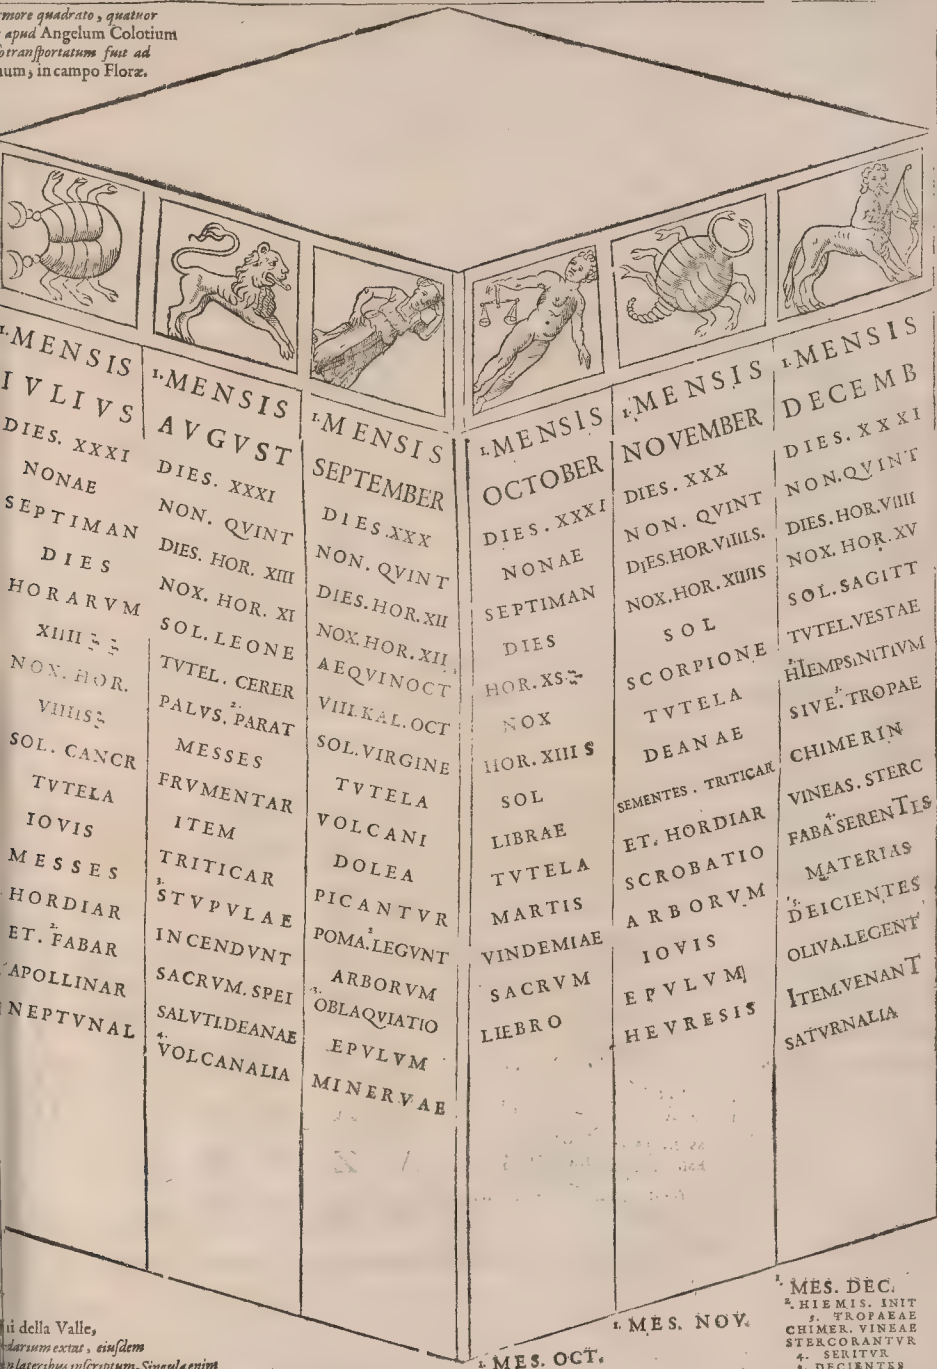 rmore quadrato, quatuor
apud Angelum Colotium
transportatum fuit ad
num, in campo Floræ.
1. MENSIS
IVLIVS
DIES. XXXI
NONAE
SEPTIMAN
DIES
HORARVM
XIIII
NOX. HOR.
VIIIIS
SOL. CANCR
TVTELA
IOVIS
MESSES
HORDIAR
2.
ET. FABAR
APOLLINAR
NEPTVNAL
1. MENSIS
AVGVST
DIES. XXXI
NON. QVINT
DIES. HOR. XIII
NOX. HOR. XI
SOL. LEONE
TVTEL. CERER
2.
PALVS. PARAT
MESSES
FRVMENTAR
ITEM
TRITICAR
3.
STVPVLAE
INCENDVNT
SACRVM. SPEI
SALVTI.DEANAE
4.
VOLCANALIA
1. MENSIS
SEPTEMBER
DIES.XXX
NON. QVINT
DIES.HOR.XII
NOX.HOR.XII
AEQVINOCT
VIII.KAL.OCT
SOL.VIRGINE
TVTELA
VOLCANI
DOLEA
PICANTVR
2.
POMA.LEGVNT
ARBORVM
3.
OBLAQVIATIO
EPVLVM
MINERVAE
1. MENSIS
OCTOBER
DIES. XXXI
NONAE
SEPTIMAN
DIES
HOR.XS
NOX
HOR.XIIIS
SOL
LIBRAE
TVTELA
MARTIS
VINDEMIAE
SACRVM
LIEBRO
1. MENSIS
NOVEMBER
DIES. XXX
NON. QVINT
DIES.HOR.VIIIIS.
NOX.HOR.XIIIIS
SOL
SCORPIONE
TVTELA
DEANAE
SEMENTES. TRITICAR
ET. HORDIAR
SCROBATIO
ARBORVM
IOVIS
EPVLVM
HEVRESIS
1. MENSIS
DECEMB
DIES. XXXI
NON.QVINT
DIES.HOR.VIIII
NOX. HOR. XV
SOL.SAGITT
TVTEL.VESTAE
2.
HIEMPSINITIVM
3.
SIVE. TROPAE
CHIMERIN
VINEAS. STERC
4.
FABASERENTES
MATERIAS
5.
DEICIENTES
OLIVA.LEGENT
ITEM.VENANT
SATVRNALIA
ii della Valle,
darium extat, eiusdem
lateribus inscriptum. Singula enim
1. MES. OCT.
1. MES. NOV.
1. MES. DEC.
2. HIEMIS. INIT
3. TROPAEAE
CHIMER. VINEAE
STERCORANTVR
4. SERITVR
5. DECIENTES